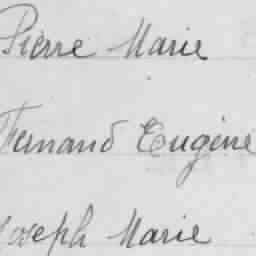 Pierre Marie
Fernand Eugène
Joseph Marie